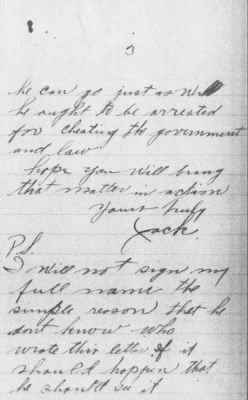 3
he can go just as well
he ought to be arrested
for cheating the government
and law
hope you will bring
that matter in action
Yours truly
Jack.
P.S.
I will not sign my
full name the
simple reason thet he
dont know who
wrote this letter if it
should happen that
he should see it